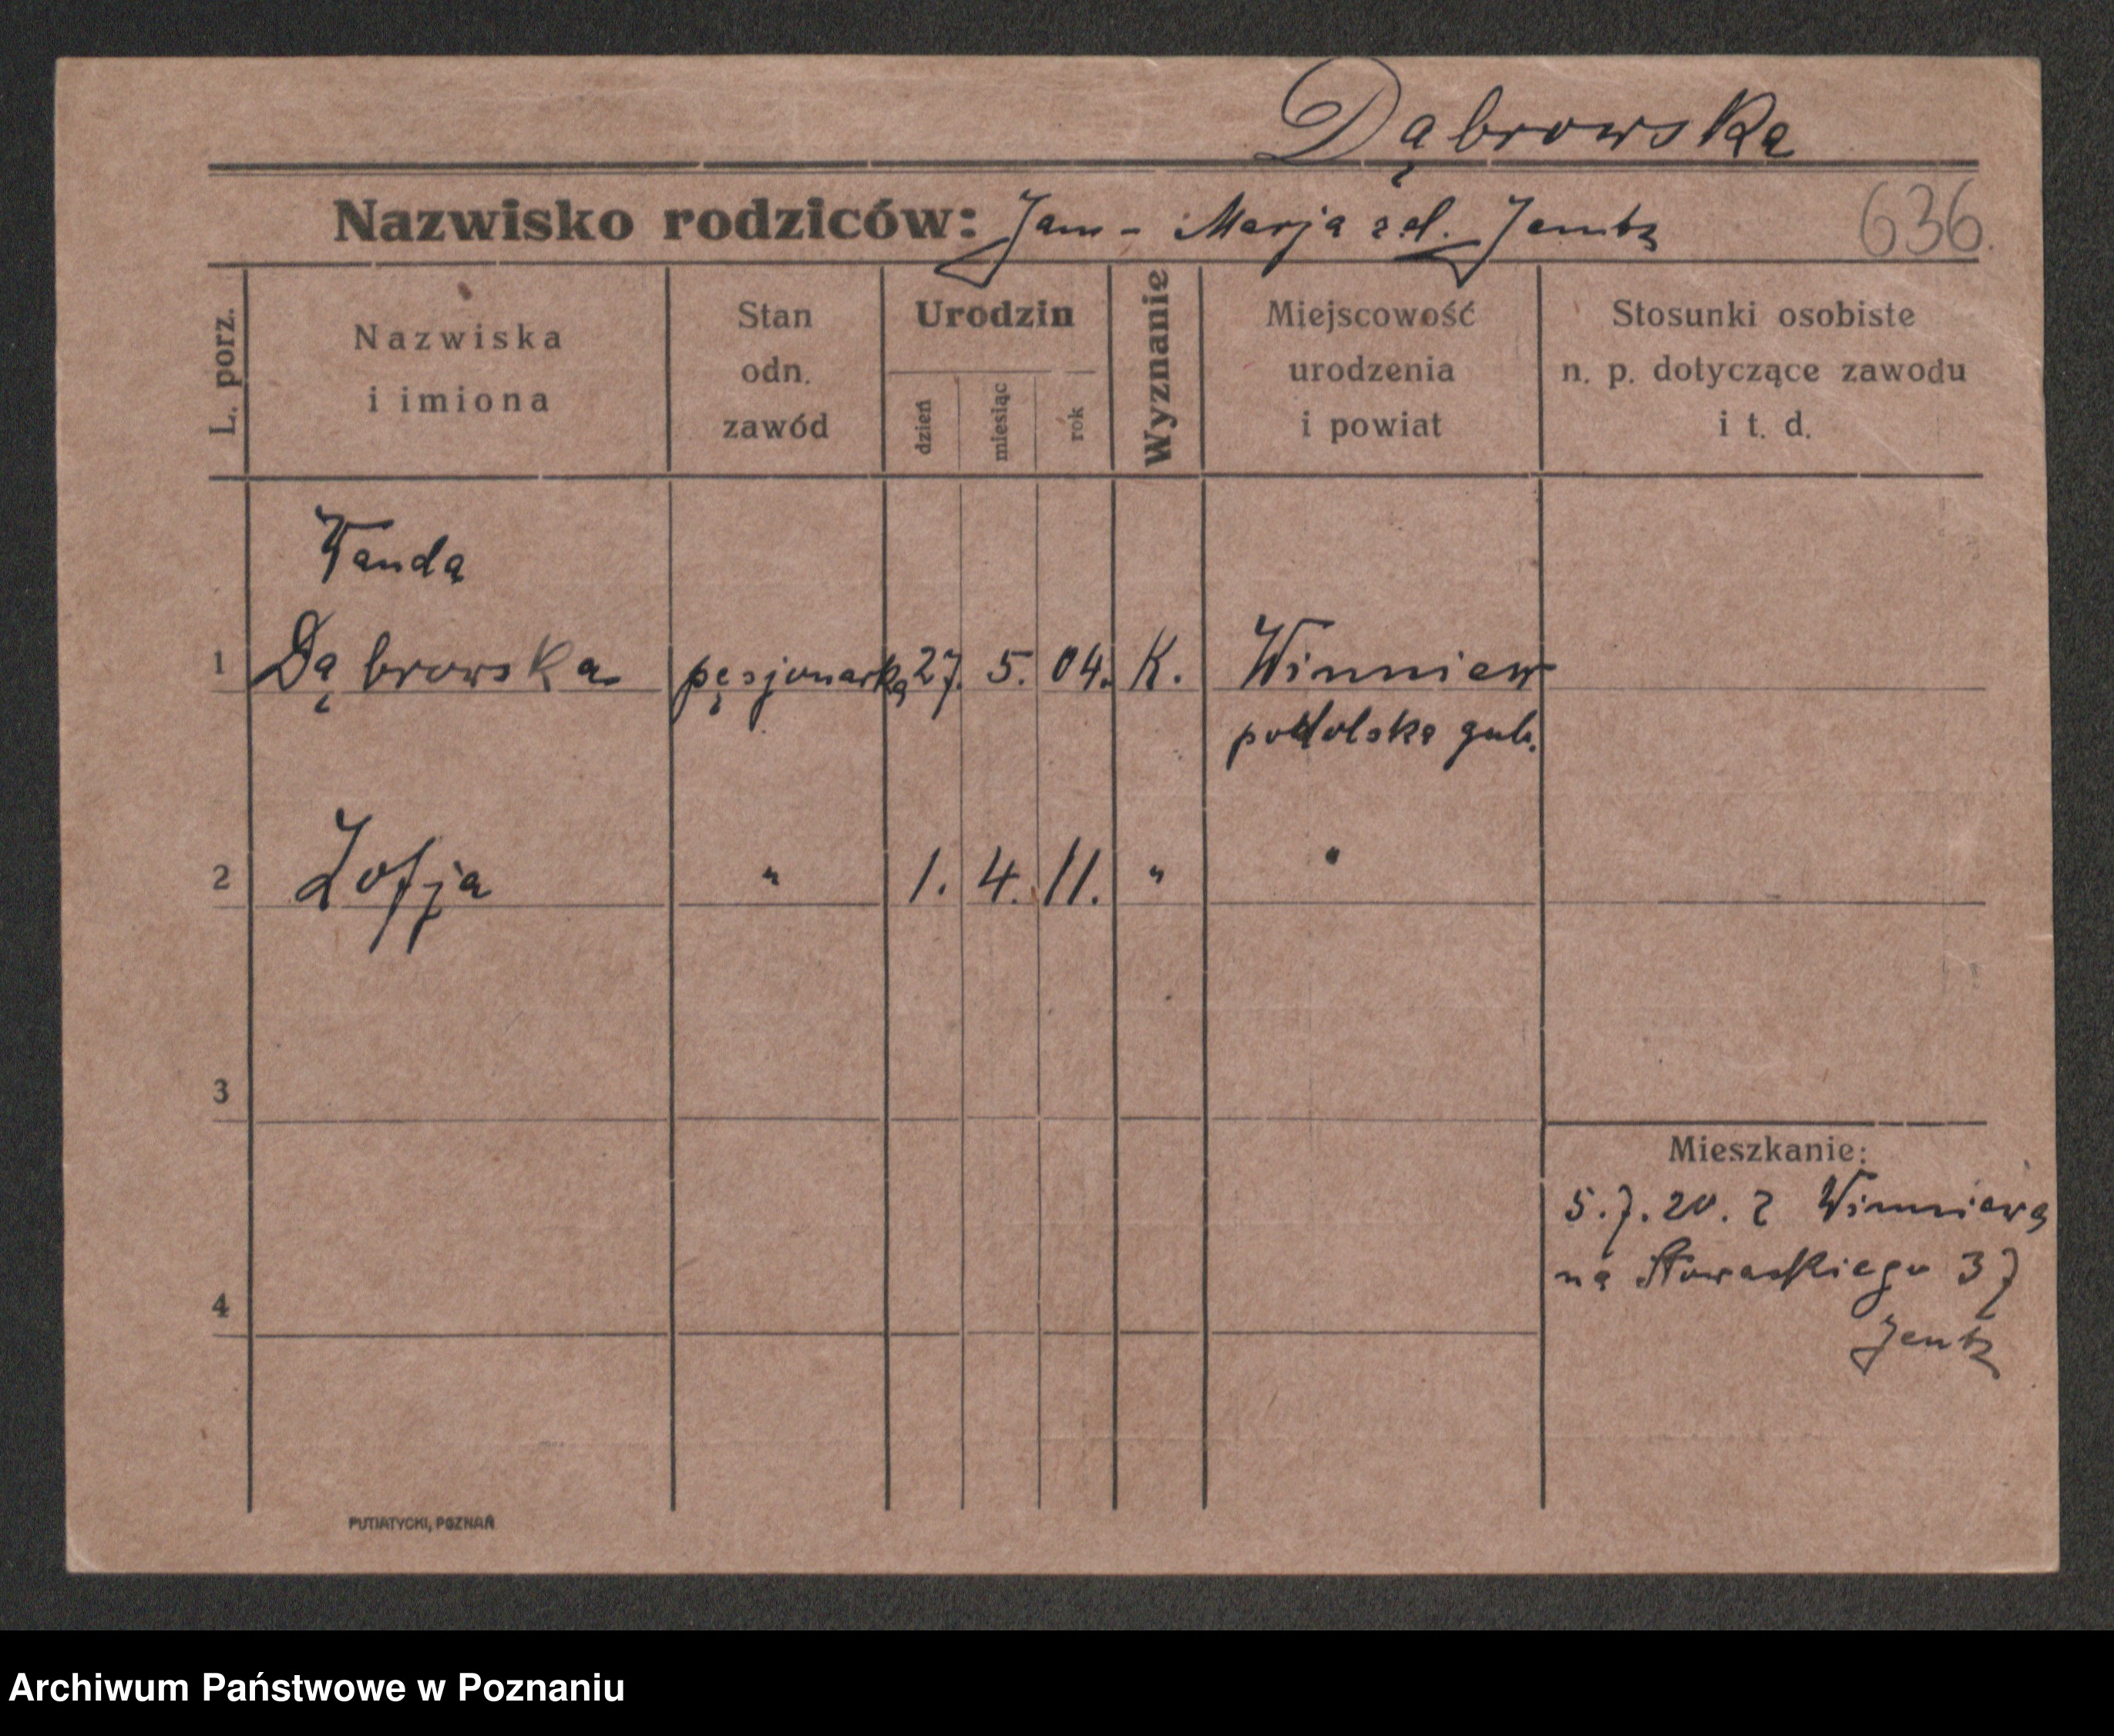 Dąbrowska
Nazwisko rodziców: Jan - Marja zd. Jentz
636.
L. porz.
Nazwiska
i imiona
Stan
odn.
zawód
Urodzin
dzień
miesiąc
rok
Wyznanie
Miejscowość
urodzenia
i powiat
Stosunki osobiste
n. p. dotyczące zawodu
i t. d.
Wanda
1 Dąbrowska pęsjonarka 27. 5. 04. K. Winniew
podolska gub.
2 Zofja " 1. 4. 11. " "
3
Mieszkanie:
5.7.20. z Winniewa
na Słowackiego 37
Jentz
4
PUTIATYCKI, POZNAŃ
Archiwum Państwowe w Poznaniu